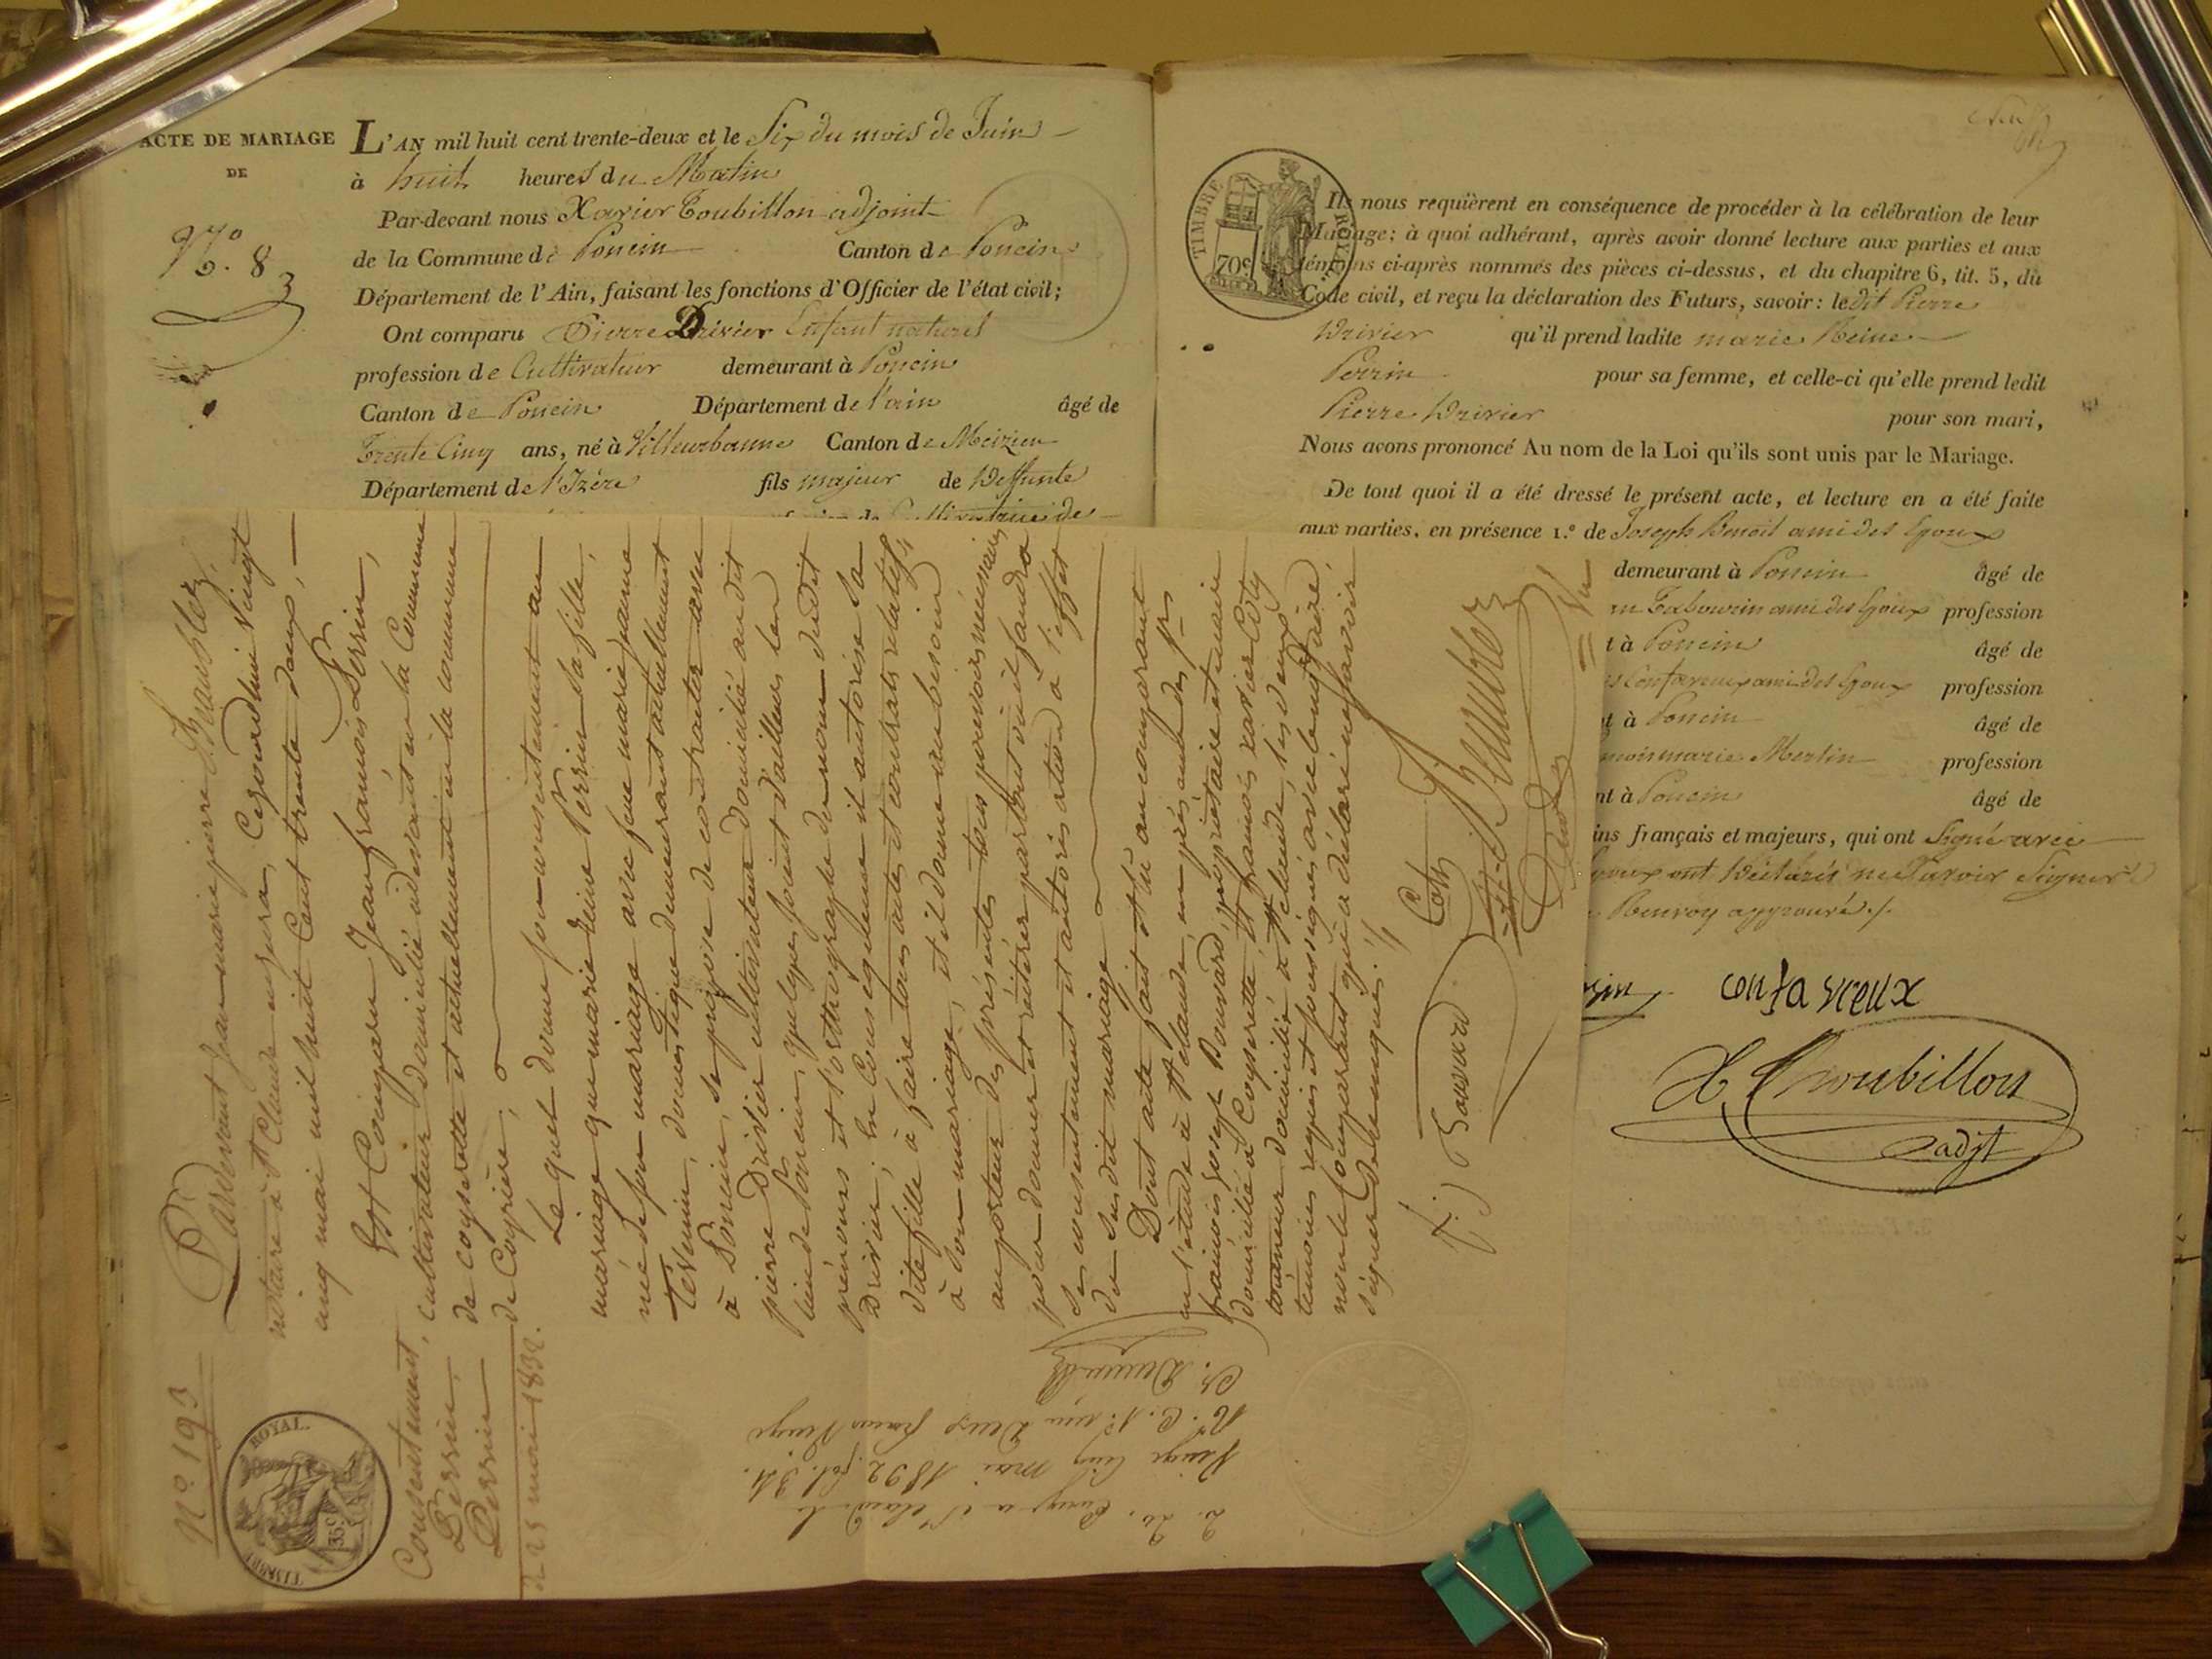 ACTE DE MARIAGE
DE
N.º 83
L'AN mil huit cent trente-deux et le Six du mois de Juin
à huit heures du Matin
Par-devant nous Xavier Troubillon adjoint
de la Commune de Poncin Canton de Poncin
Département de l'Ain, faisant les fonctions d'Officier de l'état civil;
Ont comparu Pierre Drivier Enfant naturel
profession de Cultivateur demeurant à Poncin
Canton de Poncin Département de l'ain âgé de
Trente Cinq ans, né à Villeurbanne Canton de Meizieu
Département de l'Izère fils majeur de Deffunte
Cultivatrice de
TIMBRE ROYAL
70c
Ils nous requièrent en conséquence de procéder à la célébration de leur
Mariage; à quoi adhérant, après avoir donné lecture aux parties et aux
témoins ci-après nommés des pièces ci-dessus, et du chapitre 6, tit. 5, du
Code civil, et reçu la déclaration des Futurs, savoir: ledit Pierre
Drivier qu'il prend ladite marie Reine
Perrin pour sa femme, et celle-ci qu'elle prend ledit
Pierre Drivier pour son mari,
Nous avons prononcé Au nom de la Loi qu'ils sont unis par le Mariage.
De tout quoi il a été dressé le présent acte, et lecture en a été faite
aux parties, en présence 1.º de Joseph Benoit ami des Epoux
demeurant à Poncin âgé de
Tabourin ami des Epoux profession
t à Poncin âgé de
Confavreux ami des Epoux profession
t à Poncin âgé de
marie Merlin profession
nt à Poncin âgé de
ins français et majeurs, qui ont Signé avec
Epoux ont Déclarés ne Savoir Signer
Renvoy approuvé ./.
confavreux
X. Troubillon
adjt
Nº 193
TIMBRE ROYAL.
35c
Consentement,
Perrin.
Perrin
25 mai 1832.
Pardevant Jean marie pierre Beaublez,
notaire à St Claude Cejourd'hui vingt
cinq mai mil huit Cent trente deux,
Est Comparu Jean françois Perrin,
cultivateur domicilié cidevant en la Commune
de coyserette et actuellement en la commune
de Coyrière,
Lequel donne son consentement au
mariage que marie Reine Perrin sa fille,
née de son mariage avec feue marie jeanne
domestique demeurant actuellement
à Poncin, se propose de contracter avec
pierre Drivier cultivateur domicilié au dit
lieu de Poncin, quelques soient d'ailleurs les
prénoms et l'orthographe du nom du dit
Drivier; En Conséquence il autorise sa
dite fille à faire tous actes et contrats relatifs
à son mariage, et il donne au besoin
au porteur des présentes tous pouvoirs nécessaires
pour donner et réitérer partout où il faudra
ses consentement et autorisation à l'effet
du sus dit mariage
Dont acte fait et lu au comparant
en l'étude à St Claude, en présence des Srs
françois joseph Bouvard, propriétaire et maire
domicilié à Coyserette, et françois xavier Coty
tourneur domicilié à St Claude, les deux
témoins requis et soussignés avec le notaire,
non le Comparant qui a déclaré ne savoir
signer De ce enquis ./.
f. j. Bouvard
Coty
Beaublez